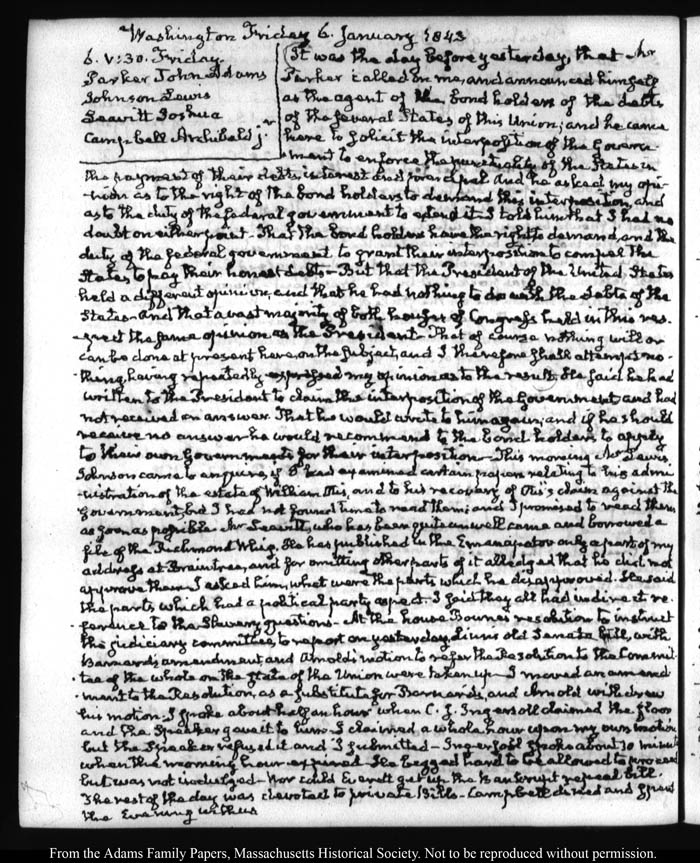 Washington Friday 6. January 1843
6. V:30. Friday.
Parker John Adams
Johnson Lewis
Leavitt Joshua
Campbell Archibald jr
It was the day before yesterday, that Mr
Parker called on me, and announced himself
as the agent of the bond holders of the debts
of the several States of this Union; and he came
here to solicit the interposition of the Govern-
-ment to enforce the punctuality of the States in
the payment of their debts, interest and principal. And he asked my opi-
-nion as to the right of the bond holders to demand this interposition, and
as to the duty of the federal government to extend it. I told him that I had no
doubt on either point. That the bond holders have the right to demand, and the
duty of the federal government to grant their interposition to compel the
States, to pay their honest debts—But that the President of the United States
held a different opinion, and that he had nothing to do with the debts of the
States—And that a vast majority of both houses of Congress held in this res-
-pect the same opinion as the President—That of course nothing will or
can be done at present here, on the subject, and I therefore shall attempt no-
-thing, having repeatedly expressed my opinion as to the result. He said he had
written to the President to claim the interposition of the Government and had
not received an answer. That he would write to him again; and if he should
receive no answer he would recommend to the bond holders, to apply
to their own Governments for their interposition—This morning Mr Lewis
Johnson came to enquire, if I had examined certain papers relating to his admi-
-nistration of the estate of William Otis, and to his recovery of Otis's claim against the
Government, but I had not found time to read them; and I promised to read them
as soon as possible. Mr Leavitt, who has been quite unwell came and borrowed a
file of the Richmond Whig. He has published in the Emancipator only a part of my
address at Braintree, and for omitting other parts of it alledged that he did not
approve them. I asked him, what were the parts which he disapproved. He said
the parts which had a political party aspect. I said they all had indirect re-
-ference to the Slavery questions—At the house Bowne's resolution to instruct
the judiciary committee, to report on yesterday, Linn's old Senate bill, with
Barnard's amendment and Arnold's motion to refer the Resolution to the Commit-
-tee of the whole on the state of the Union were taken up—I moved an amend-
-ment to the Resolution, as a substitute for Barnard's, and Arnold withdrew
his motion. I spoke about half an hour when C. J. Ingersoll claimed the floor
and the Speaker gave it to him. I claimed a whole hour upon my own motion
but the Speaker refused it and I submitted—Ingersoll spoke about 10 minutes
when the morning hour expired. He begged hard to be allowed to proceed
but was not indulged—Nor could Everett get up the Bankrupt repeal bill.
The rest of the day was devoted to private Bills—Campbell dined and spent
the Evening with us
From the Adams Family Papers, Massachusetts Historical Society. Not to be reproduced without permission.